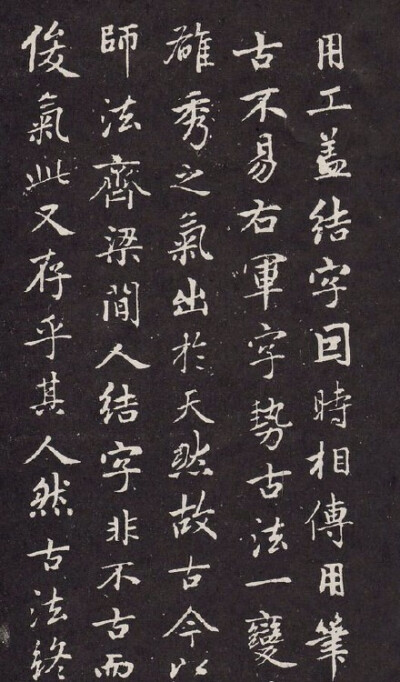 用工盖结字囙時相傳用筆
古不易右軍字勢古法一變
雄秀之氣出於天然故古今以
師法齊梁間人结字非不古而
俊氣此又存乎其人然古法終